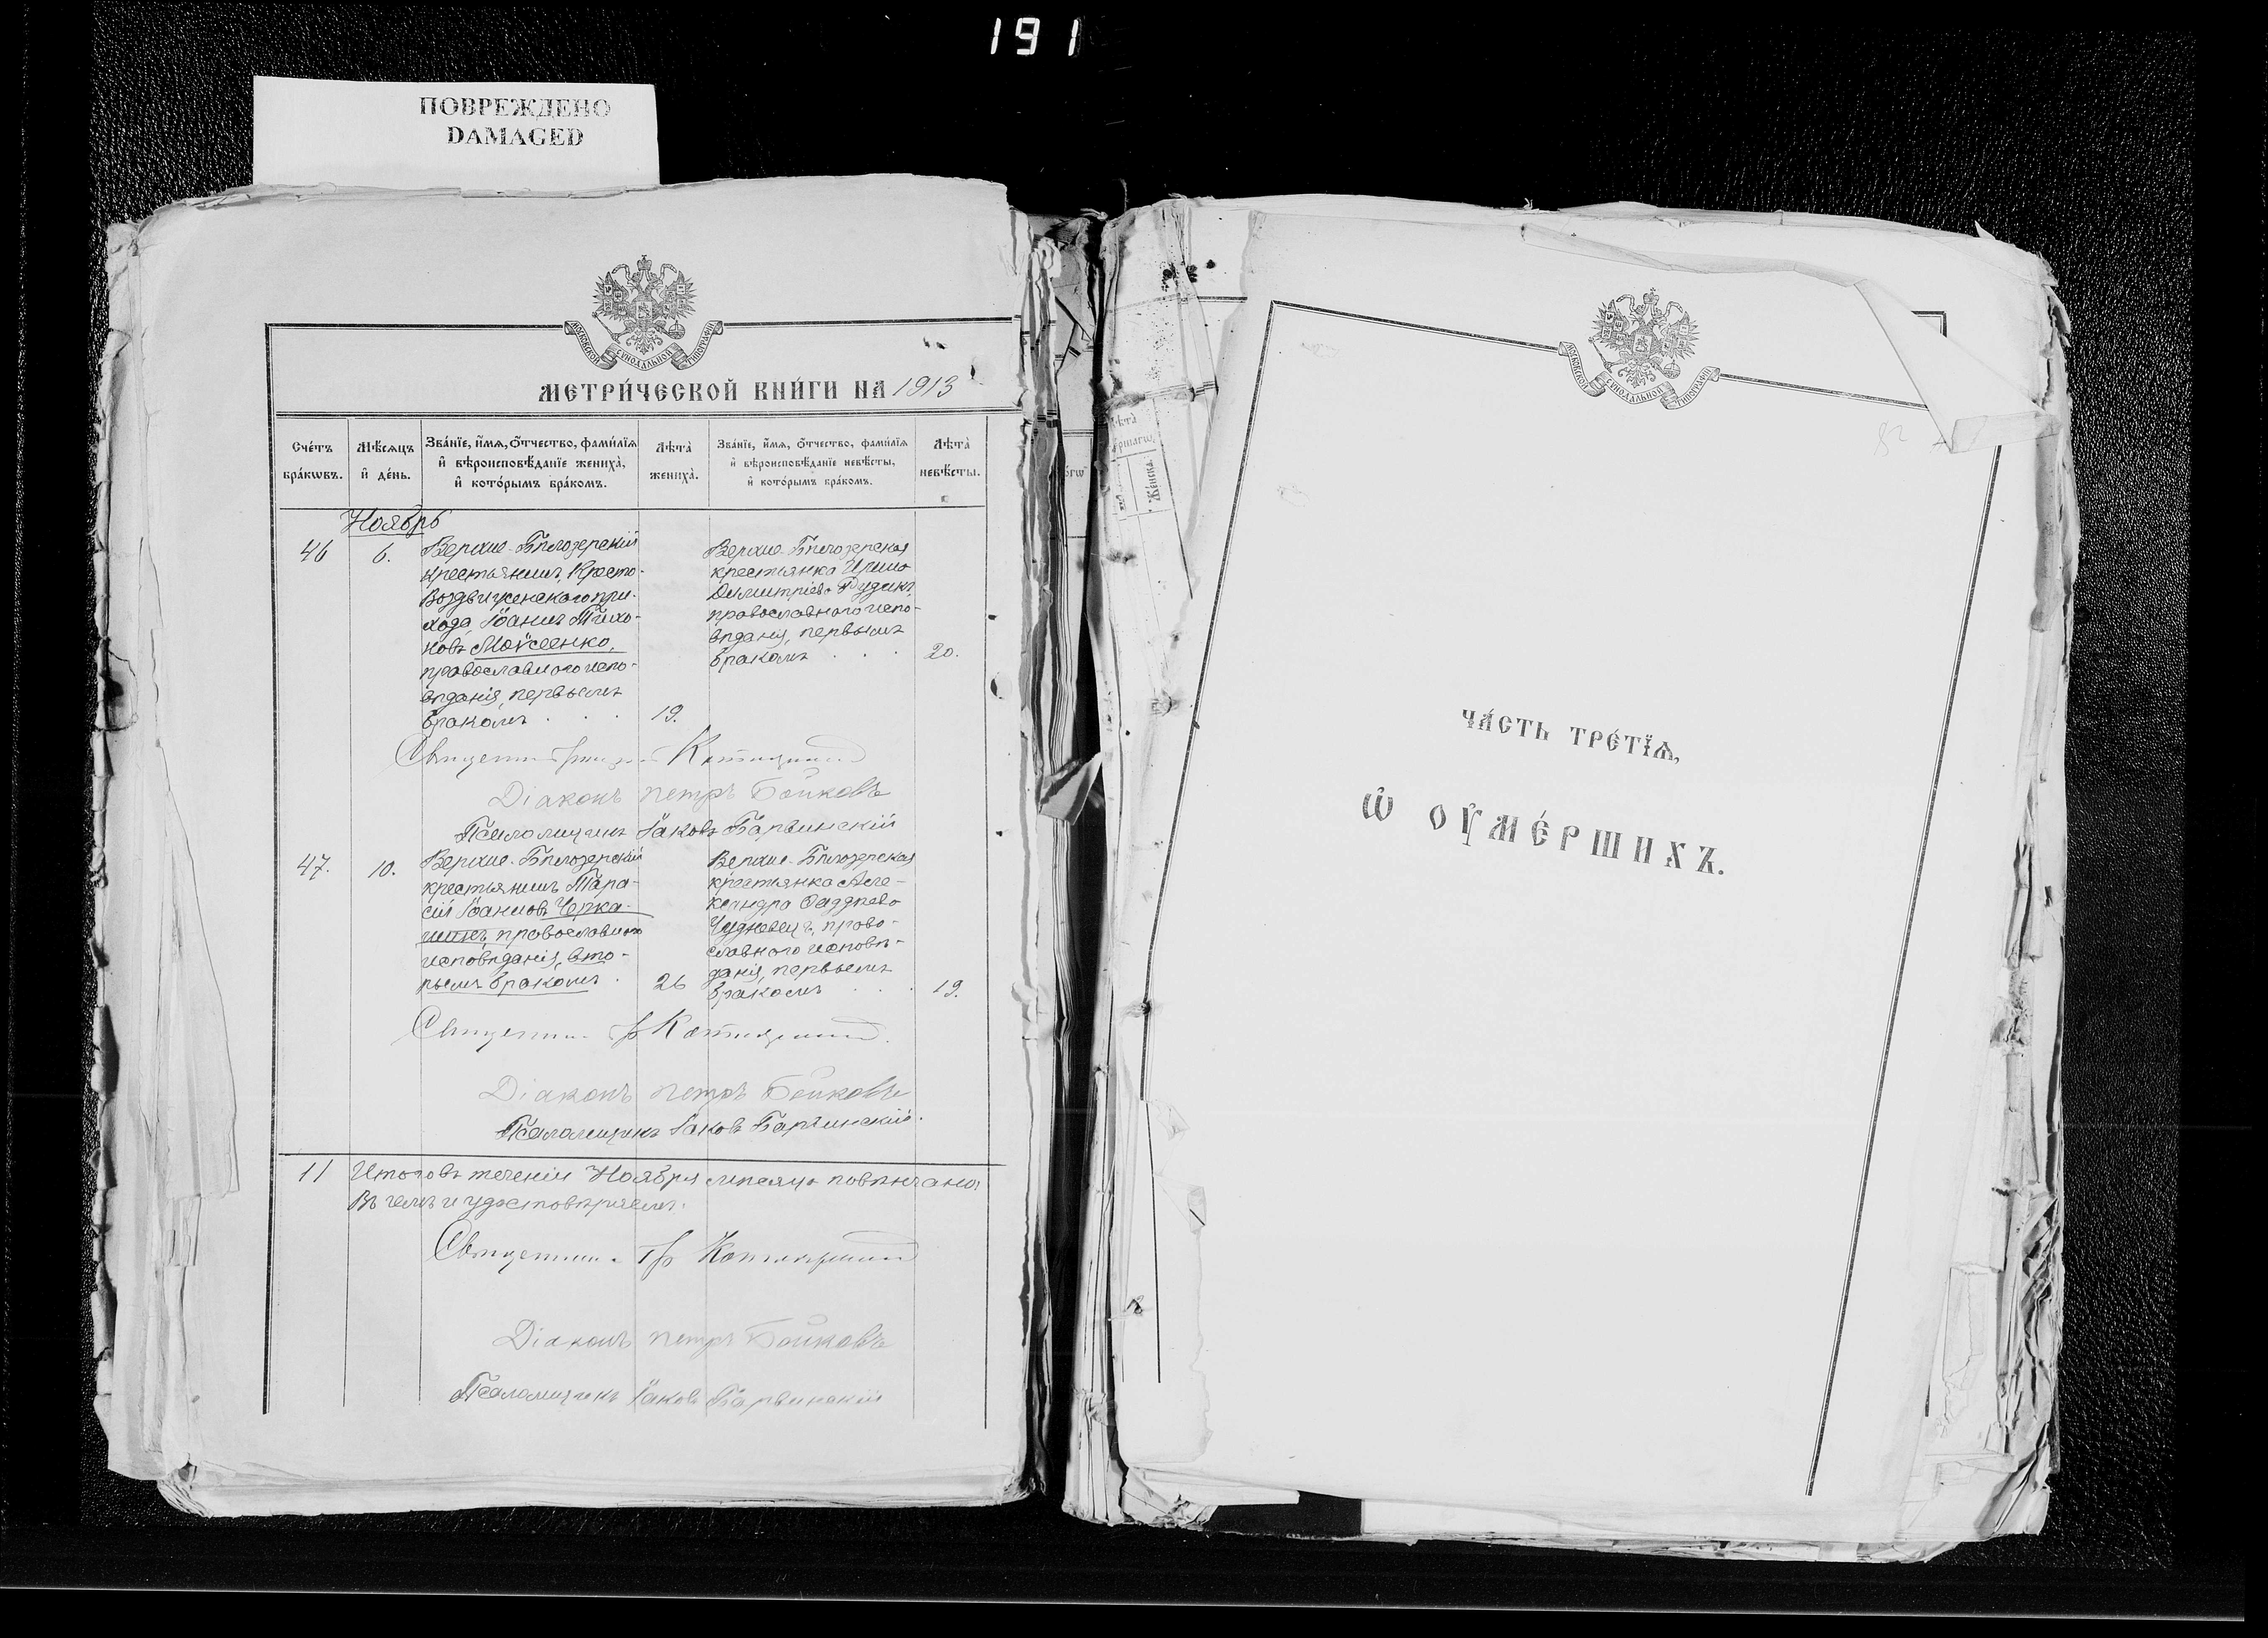 191
ПОВРЕЖДЕНО
DAMAGED
МОСКОВСКОЙ СѴНОДАЛЬНОЙ ТИПОГРАФІИ
МЕТРИ́ЧЕСКОЙ КНИ́ГИ НА 1913
Сче́тъ бра́кѡвъ.
Мѣ́сѧцъ и҆ де́нь.
Зва́нїе, и҆́мѧ, ѻ҆́тчество, фами́лїѧ и҆ вѣроисповѣ́данїе жениха̀, и҆ кото́рымъ бра́комъ.
Лѣ́та жениха̀.
Зва́нїе, и҆́мѧ, ѻ҆́тчество, фами́лїѧ и҆ вѣроисповѣ́данїе невѣ́сты, и҆ кото́рымъ бра́комъ.
Лѣ́та невѣ́сты.
Ноябрь
46
6.
Верхне-Бѣлозерскій
крестьянинъ, Кресто-
Воздвиженскаго при-
хода Іоаннъ Тихо-
новъ Моѵсеенко,
православнаго испо-
вѣданія, первымъ
бракомъ . . .
19.
Верхне-Бѣлозерская
крестьянка Ирина
Димитріева Рудикъ,
православнаго испо-
вѣданія, первымъ
бракомъ . . .
20.
Діаконъ Петръ Бойковъ
Псаломщикъ Іаковъ Барвинскій
47.
10.
Верхне-Бѣлозерскій
крестьянинъ Тара-
сій Іоанновъ Черка-
шинъ, православнаго
исповѣданія, вто-
рымъ бракомъ .
26
Верхне-Бѣлозерская
крестьянка Але-
ксандра Фаддѣева
Чудновецъ, право-
славнаго исповѣ-
данія, первымъ
бракомъ . . .
19.
Діаконъ Петръ Бойковъ
Псаломщикъ Іаковъ Барвинскій.
11
Итого въ теченіи Ноября мѣсяца повѣнчано
Въ чемъ и удостовѣряемъ.
Діаконъ Петръ Бойковъ
Псаломщикъ Іаковъ Барвинскій
МОСКОВСКОЙ СѴНОДАЛЬНОЙ ТИПОГРАФІИ
ЧА́СТЬ ТРЕ́ТЇѦ,
Ѡ҆ ОУ҆МЕ́РШИХЪ.